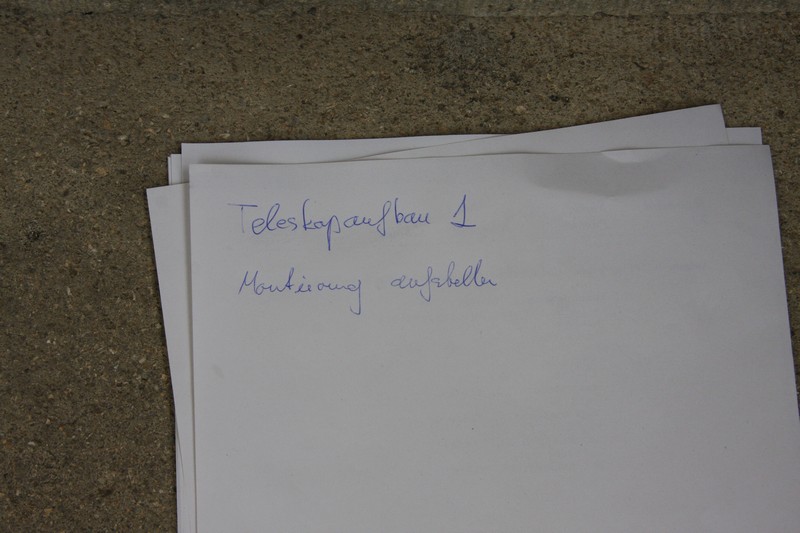 Teleskopaufbau 1
Montierung aufstellen